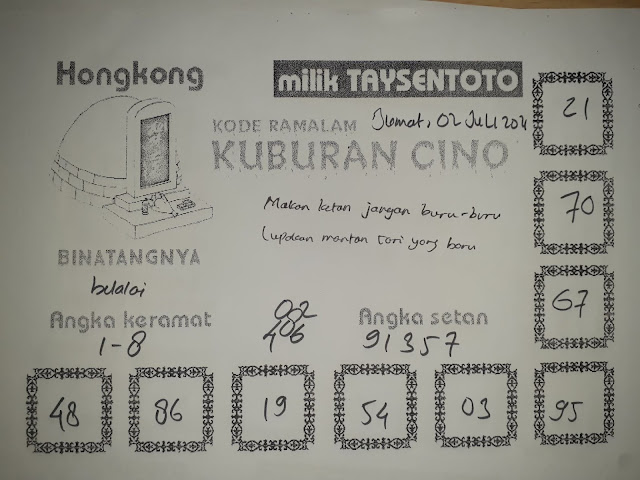 Hongkong
milik TAYSENTOTO
KODE RAMALAM Jumat, 02 Juli 2021
KUBURAN CINO
21
70
67
95
Makan ketan jangan buru-buru
Lupakan mantan cari yang baru
BINATANGNYA
belalai
Angka keramat
1-8
002
406
Angka setan
91357
48
86
19
54
03